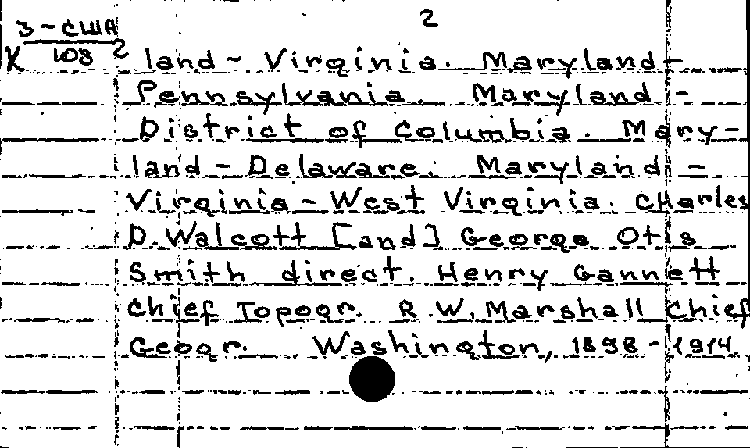 3-CWA
2
K 103 2
land - Virginia. Maryland -
Pennsylvania. Maryland -
District of Columbia. Mary-
land - Delaware. Maryland -
Virginia - West Virginia. Charles
D. Walcott [and] George Otis
Smith direct. Henry Gannett
Chief Topogr. R. W. Marshall Chief
Geogr. Washington, 1898-1914